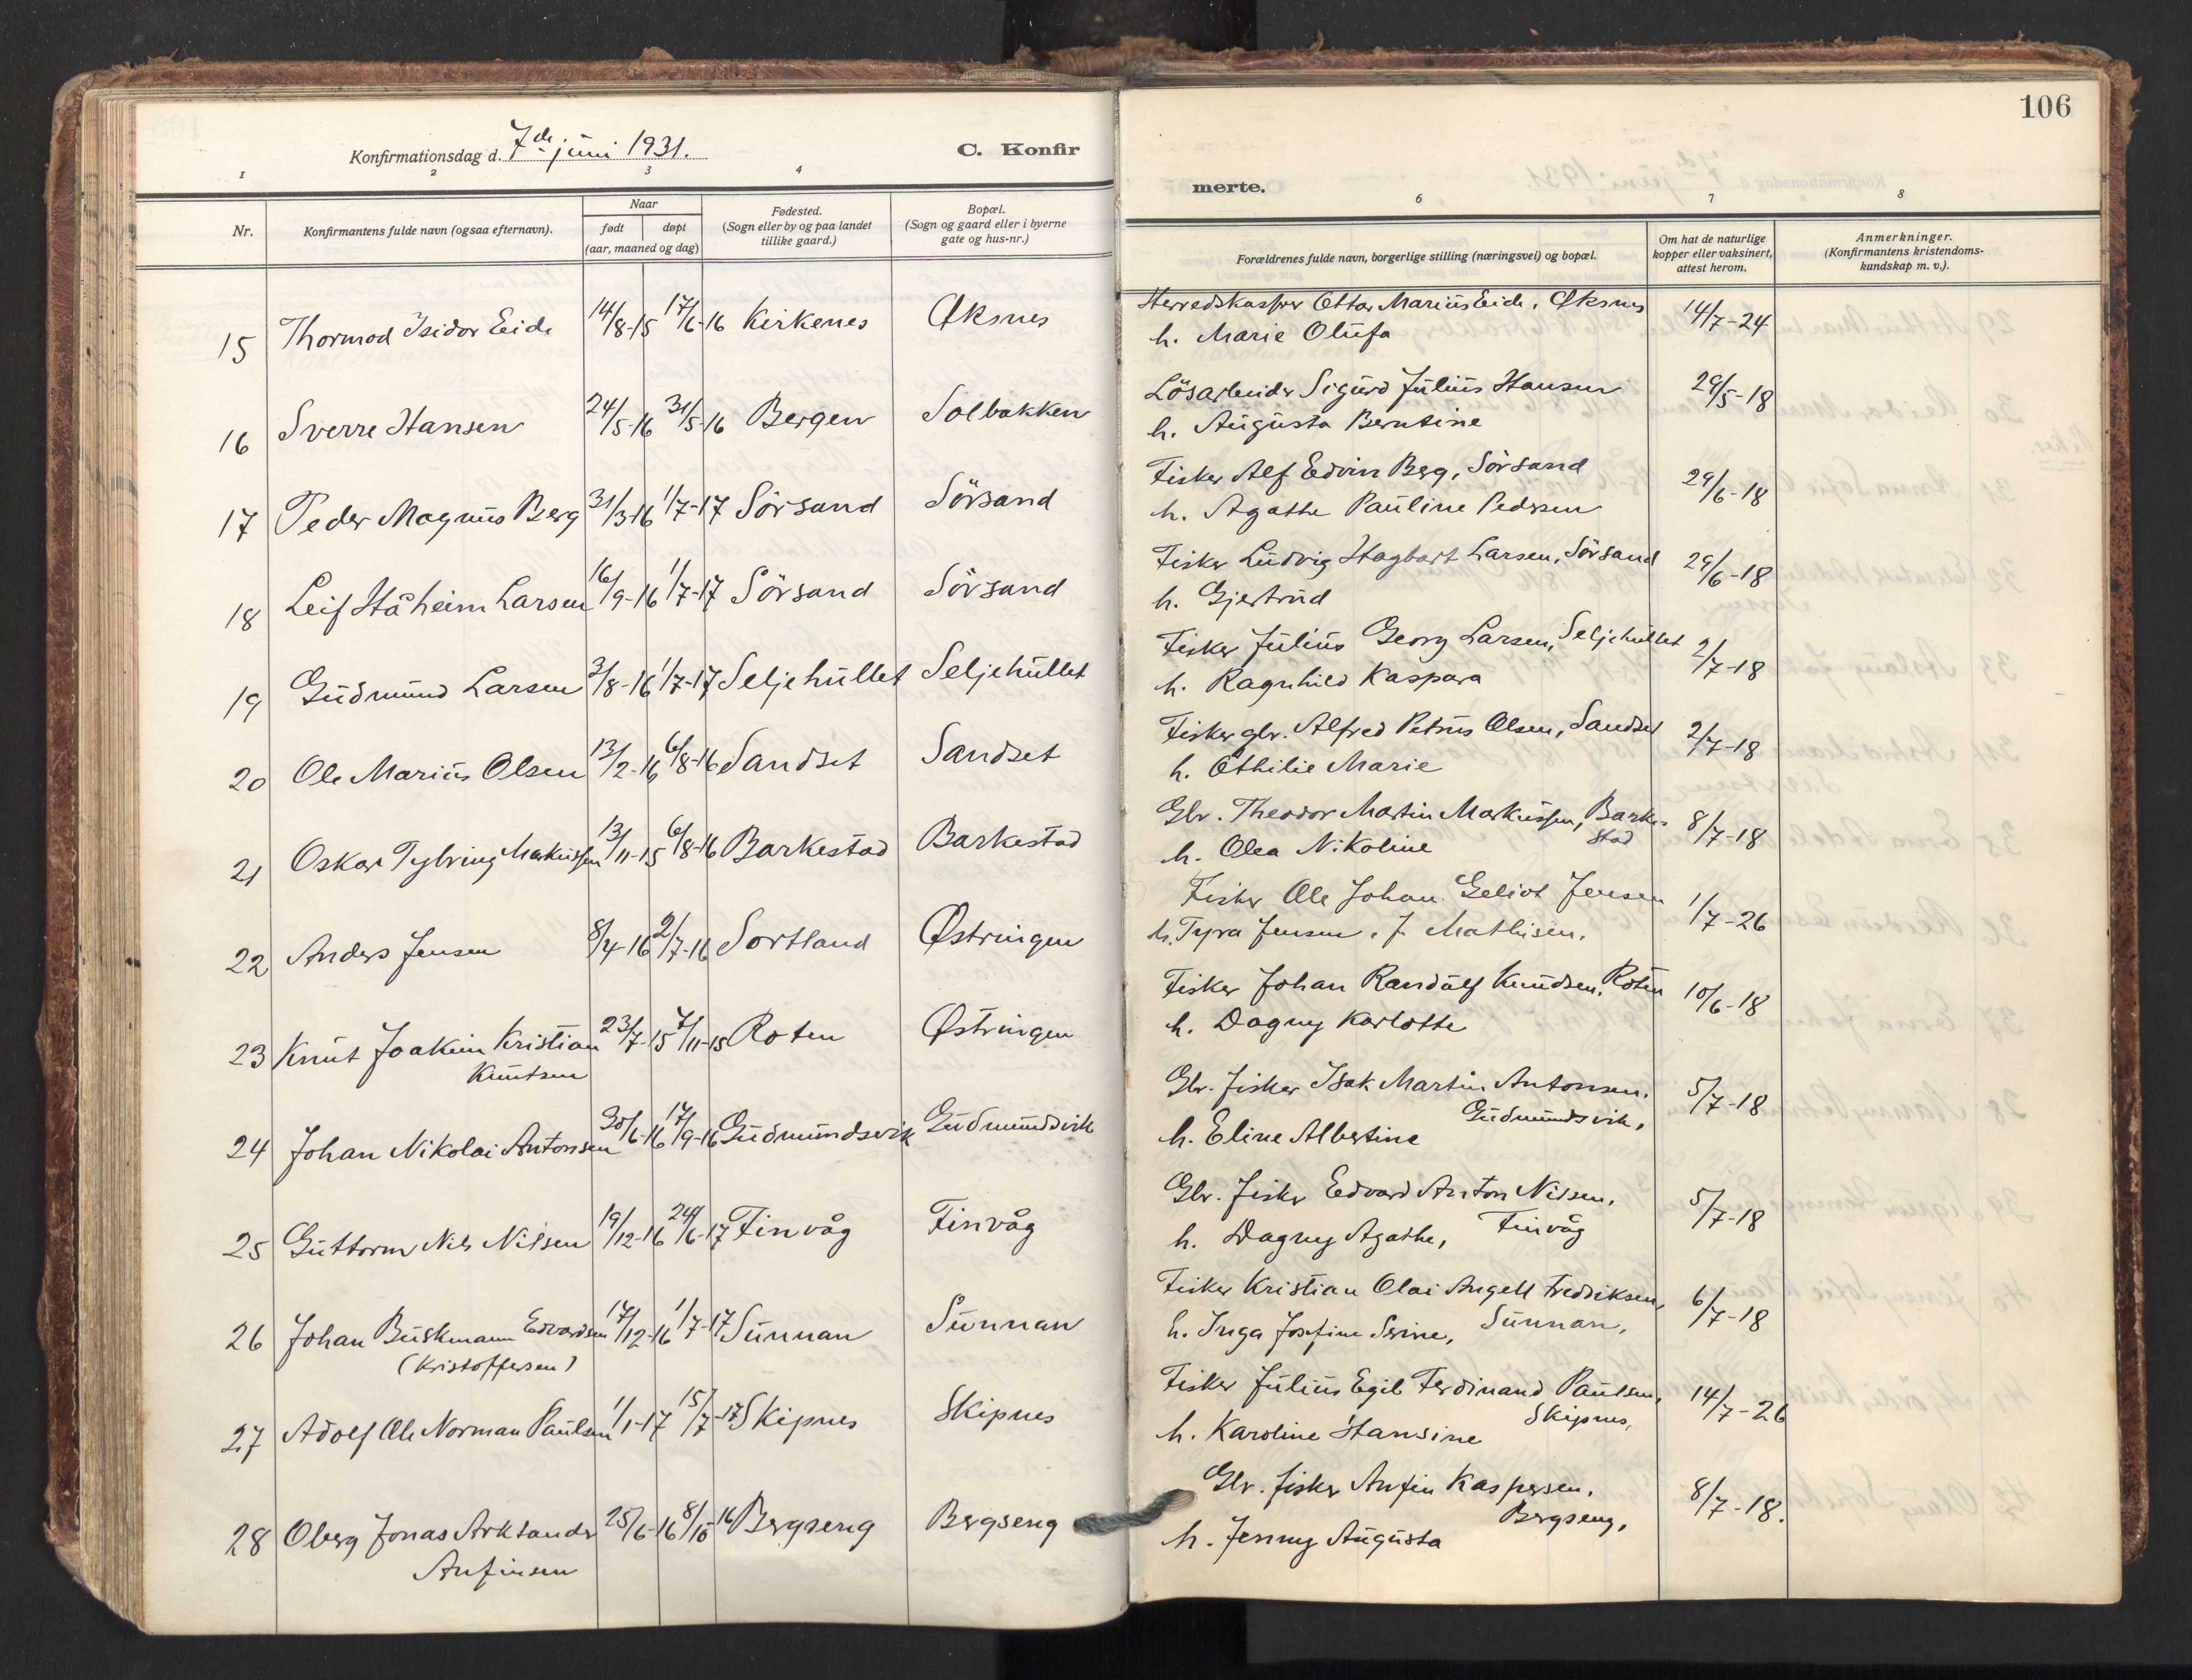 106
Konfirmationsdag d. 7de juni 1931.
C. Konfirmerte.
1 2 3 4 6 7 8
Nr.
Konfirmantens fulde navn (ogsaa efternavn).
Naar
født døpt
(aar, maaned og dag)
Fødested.
(Sogn eller by og paa landet
tillike gaard.)
Bopæl.
(Sogn og gaard eller i byerne
gate og hus-nr.)
Forældrenes fulde navn, borgerlige stilling (næringsvei) og bopæl.
Om hat de naturlige
kopper eller vaksinert,
attest herom.
Anmerkninger.
(Konfirmantens kristendoms-
kundskap m. v.).
15 Thormod Isidor Eide 14/8-15 17/6-16 Kirkenes Øksnes Herredskasser Ottar Marius Eide, Øksnes 14/7-24
h. Marie Olufa
16 Sverre Hansen 24/5-16 31/5-16 Bergen Solbakken Lösarbeider Sigurd Julius Hansen 29/5-18
h. Augusta Berntine
17 Peder Magnus Berg 31/3-16 1/7-17 Sörsand Sörsand Fisker Alf Edvin Berg, Sörsand 29/6-18
h. Agathe Pauline Pedersen
18 Leif Håheim Larsen 16/9-16 1/7-17 Sörsand Sörsand Fisker Ludvig Hagbart Larsen, Sörsand 29/6-18
h. Gjertrud
19 Gudmund Larsen 3/8-16 1/7-17 Seljehullet Seljehullet Fisker Julius Georg Larsen, Seljehullet 2/7-18
h. Ragnhild Kaspara
20 Ole Marius Olsen 13/2-16 6/8-16 Sandset Sandset Fisker gbr. Alfred Petrus Olsen, Sandset 2/7-18
h. Othilie Marie
21 Oskar Tylving Markussen 13/11-15 6/8-16 Barkestad Barkestad Gbr. Theodor Martin Markussen, Barke-
stad 8/7-18
h. Olea Nikoline
22 Anders Jensen 8/4-16 2/7-16 Sortland Østringen Fisker Ole Johan Geliot Jensen 1/7-26
h. Tyra Jensen, f. Mathisen.
23 Knut Joakim Kristian 23/7-15 7/11-15 Roten Østringen Fisker Johan Randulf Knudsen, Roten 10/6-18
Knutsen h. Dagny Karlotte
24 Johan Nikolai Antonsen 30/6-16 17/9-16 Gudmundsvik Gudmundsvik Gbr. fisker Isak Martin Antonsen, 5/7-18
Gudmundsvik,
h. Eline Albertine
25 Guttorm Nils Nilsen 19/12-16 24/6-17 Finvåg Finvåg Gbr. fisker Edvard Anton Nilsen, 5/7-18
h. Dagny Agathe, Finvåg
26 Johan Buskmann Edvardsen 17/12-16 1/7-17 Sunnan Sunnan Fisker Kristian Olai Angell Fredriksen, 6/7-18
(Kristoffersen) h. Inga Josefine Serine, Sunnan,
27 Adolf Ole Norman Paulsen 1/1-17 15/7-17 Skipnes Skipnes Fisker Julius Egil Ferdinand Paulsen, 14/7-26
Skipnes,
h. Karoline Hansine
28 Oberg Jonas Arksander 25/6-16 8/10 16 Bergseng Bergseng Gbr. fisker Anfin Kaspersen, 8/7-18.
Anfinsen Bergseng,
h. Jenny Augusta